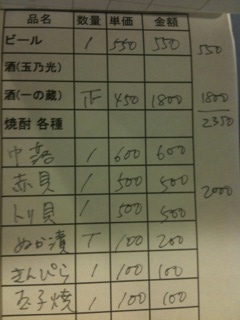 品名 数量 単価 金額
ビール 1 550 550 550
酒(玉乃光)
酒(一の蔵) 450 1800 1800
焼酎 各種 2350
中落 1 600 600
赤貝 1 500 500 2000
トリ貝 1 500 500
ぬか漬 T 100 200
きんぴら 1 100 100
玉子焼 1 100 100